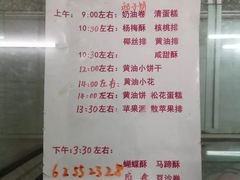 椰子奶
上午： 9:00左右：奶油卷 清蛋糕
10:30左右：杨梅酥 核桃排
椰丝排 黄油排
10:30左右： 咸甜酥
12:00左右：黄油小饼干
14:00左右：黄油小花
14:00左右：黄油饼 松花蛋糕
13:30左右：苹果派 散苹果排
下午：3:30左右：
蝴蝶酥 马蹄酥
62552328
豆沙卷